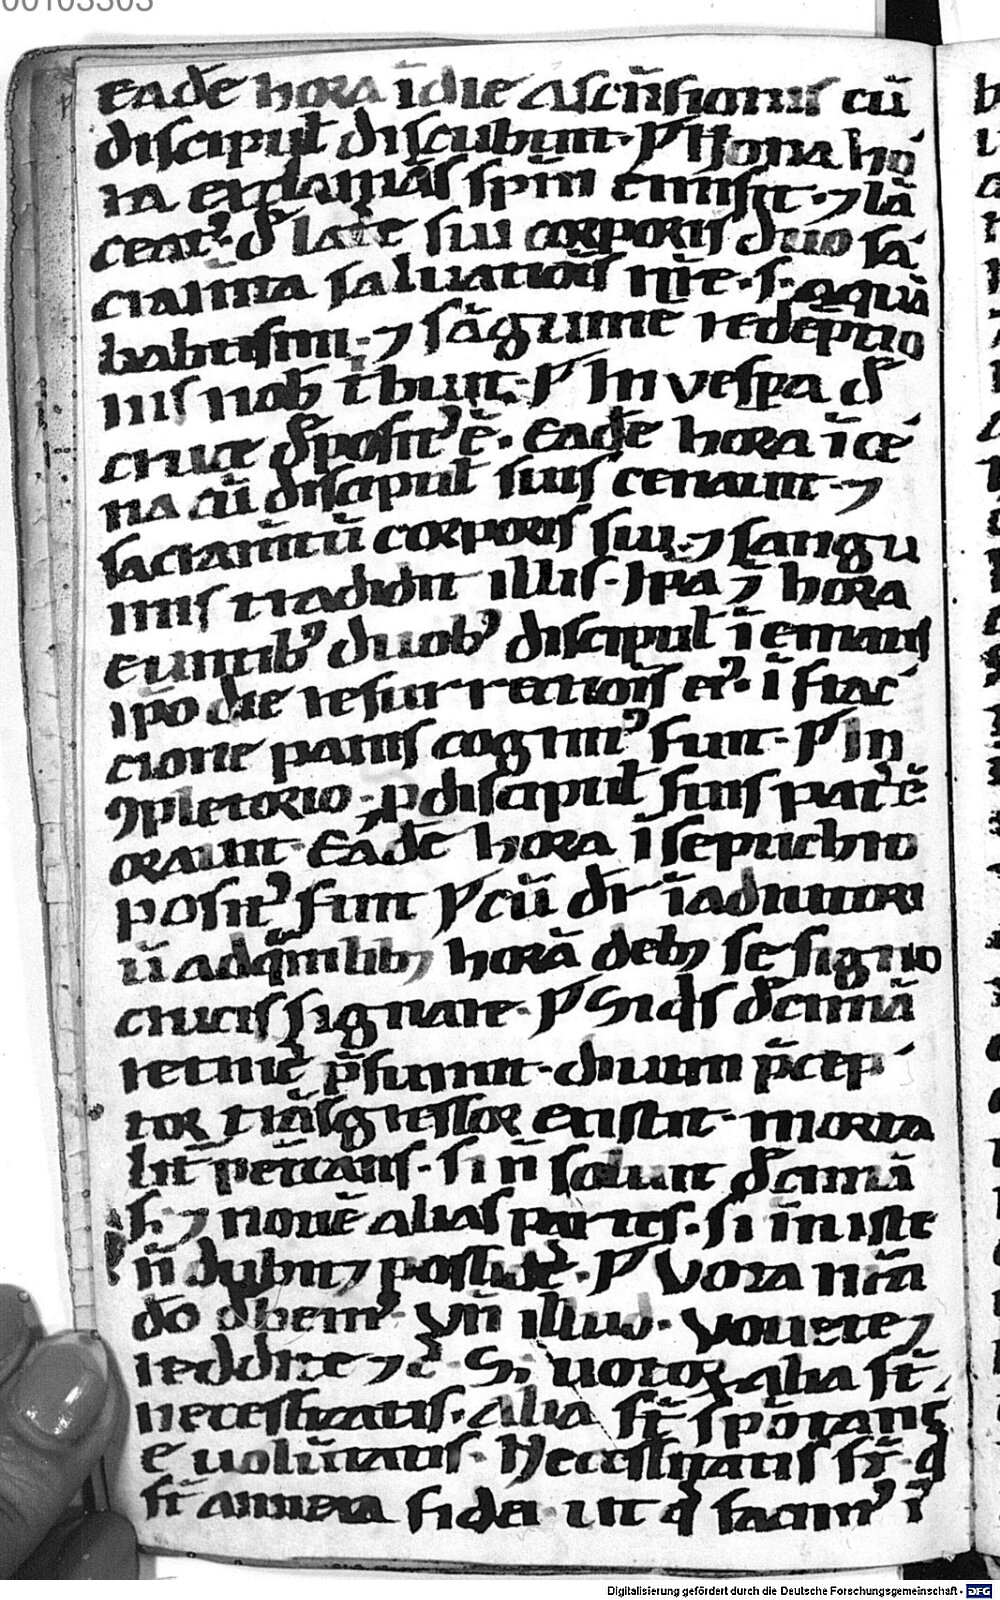 00103303
Eadē hora ī die ascēsionis cū
discipul̄ discubuit. ꝑ Nona ho
ra exclamās sp̄m emisit. ⁊ lā
ceat᷒. d̄ lat̄e sui corporis duo sa
cram̄ta saluatiōis n̄re. s. aquā
babtismi. ⁊ sāguine redēptio
nis nob̄ t̄buit. ꝑ In vesp̱a d̄
cruce d̄posit᷒ ē. Eadē hora ī ce
na cū discipul̄ suis cenauit. ⁊
sacram̄tū corporis sui. ⁊ sangu
inis tradidit illis. Ip̄a ⁊ hora
euntib᷒ duob᷒ discipul̄ ī emaus
ip̄o die resurrectiōis ei᷒. ī frac
cione panis cognit᷒ fuit. ꝑ In
ꝯpletorio. ꝓ discipul̄ suis patrē
orauit. Eadē hora ī sepulchro
posit᷒ fuit ꝑ cū dr̄ ī adiutori
ū ad q̄mlibꝫ horā debꝫ se signo
crucis signare. ꝑ Si q̄s decimā
retinē p̄sumit. diuini p̄cep
tor trāsgressor existit. morta
lit̄ peccans. si n̄ soluit decimā
s; ⁊ nouē alias partes. si ī iste
n̄ dubitꝫ possidē. ꝑ Vota n̄rā
dō d̄bem᷒. Vn̄ illud. Vouete ⁊
reddite ⁊ c̄. Si uotoꝝ alia st̄
necessitatis. Alia st̄ spōtane
e uolūtatis. Necessitatis st̄. q̄
st̄ annexa fidei. ut q̄ facim᷒ ī
Digitalisierung gefördert durch die Deutsche Forschungsgemeinschaft - DFG